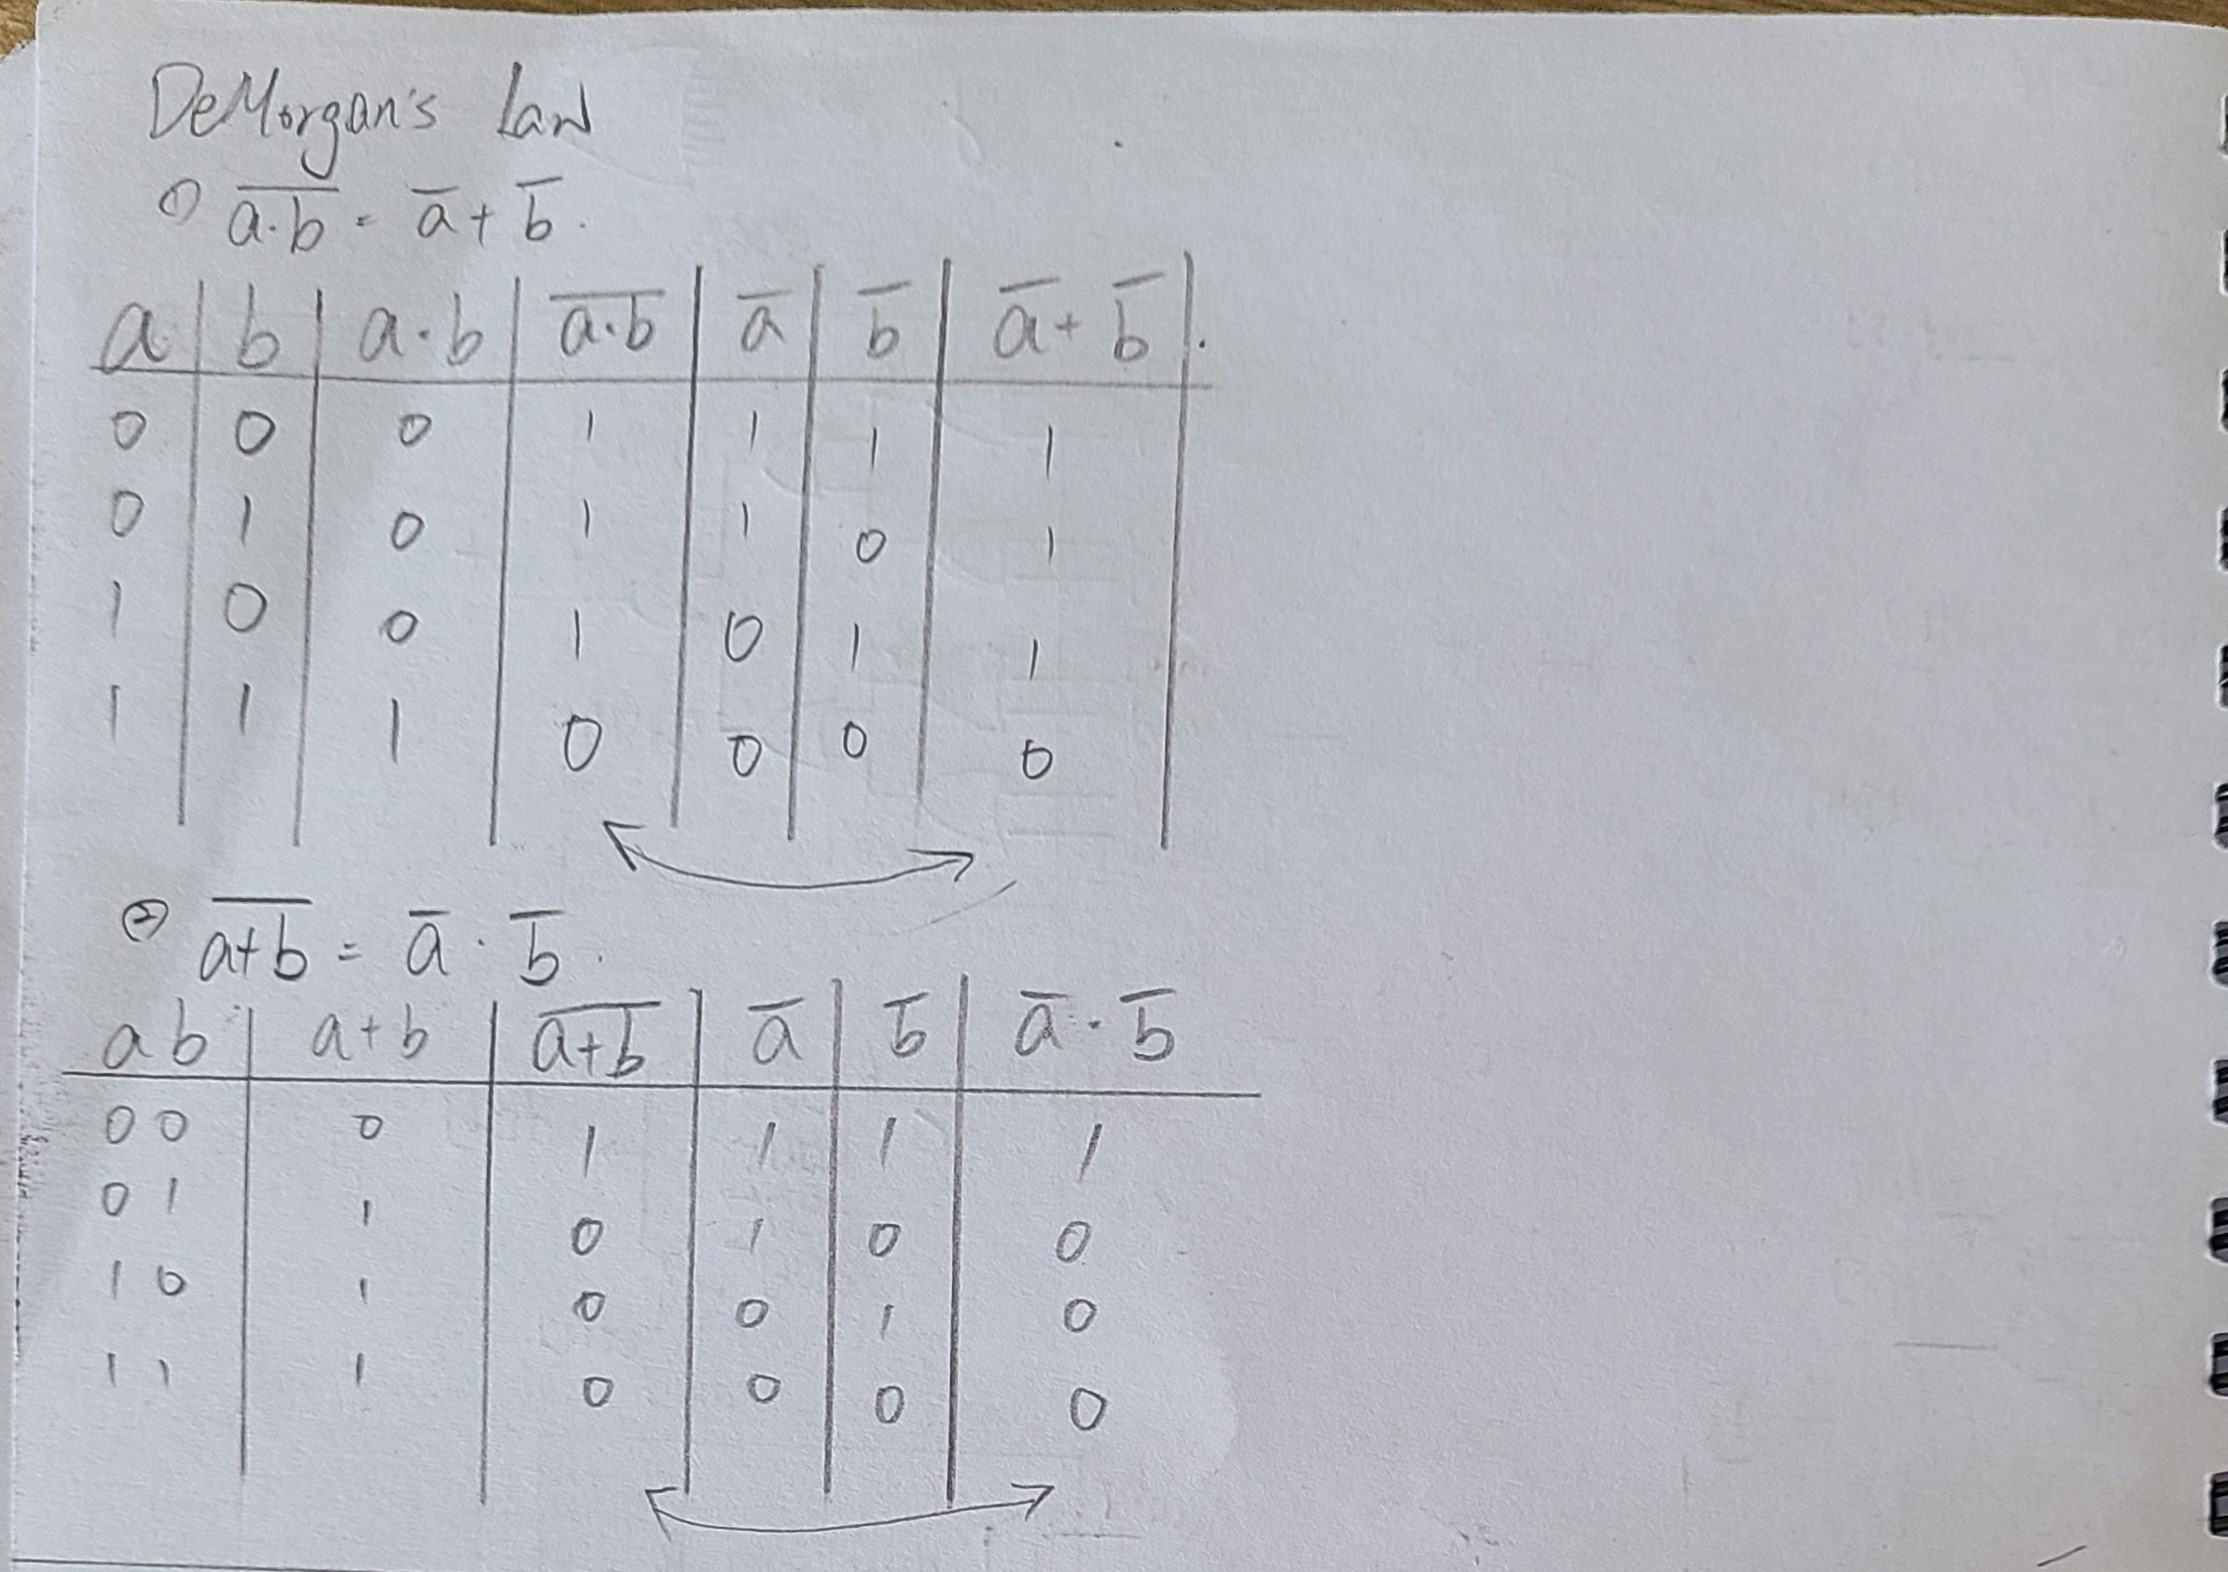 DeMorgan's Law
① a·b̅ = a̅ + b̅.
a b a·b a·b̅ a̅ b̅ a̅ + b̅ .
0 0 0 1 1 1 1
0 1 0 1 1 0 1
1 0 0 1 0 1 1
1 1 1 0 0 0 0
② a̅+̅b̅ = a̅ · b̅.
a b a+b a̅+̅b̅ a̅ b̅ a̅ · b̅
0 0 0 1 1 1 1
0 1 1 0 1 0 0
1 0 1 0 0 1 0
1 1 1 0 0 0 0